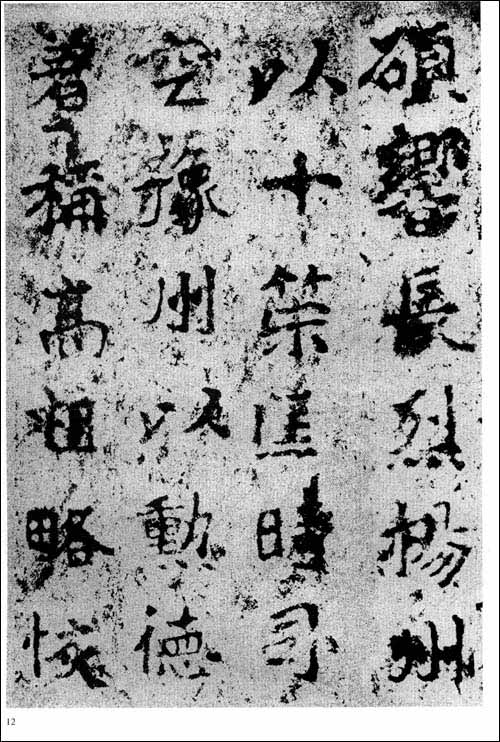 碩響長烈楊州
以十策匡時司
空豫州以勳德
著稱高祖略恢
12